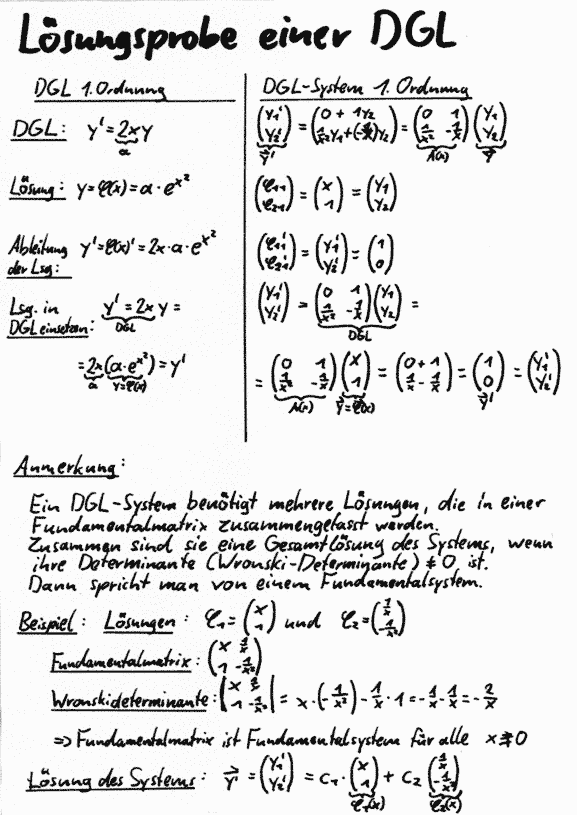 Lösungsprobe einer DGL
DGL 1. Ordnung
DGL: y' = 2x y
a
Lösung: y = φ(x) = a · e^(x²)
Ableitung y' = φ(x)' = 2x · a · e^(x²)
der Lsg.:
Lsg. in y' = 2x y =
DGL
DGL einsetzen:
= 2x (a · e^(x²)) = y'
a y = φ(x)
DGL-System 1. Ordnung
(y₁' ; y₂') = (0 + 1y₂ ; 1/x² y₁ + (-1/x) y₂) = (0 1 ; 1/x² -1/x) (y₁ ; y₂)
y⃗' A(x) y⃗
(φ₁₁ ; φ₂₁) = (x ; 1) = (y₁ ; y₂)
(φ₁₁' ; φ₂₁') = (y₁' ; y₂') = (1 ; 0)
(y₁' ; y₂') = (0 1 ; 1/x² -1/x) (y₁ ; y₂) =
DGL
= (0 1 ; 1/x² -1/x) (x ; 1) = (0 + 1 ; 1/x - 1/x) = (1 ; 0) = (y₁' ; y₂')
A(x) y⃗ = φ⃗(x) y⃗'
Anmerkung:
Ein DGL-System benötigt mehrere Lösungen, die in einer
Fundamentalmatrix zusammengefasst werden.
Zusammen sind sie eine Gesamtlösung des Systems, wenn
ihre Determinante (Wronski-Determinante) ≠ 0 ist.
Dann spricht man von einem Fundamentalsystem.
Beispiel: Lösungen: φ₁ = (x ; 1) und φ₂ = (1/x ; -1/x²)
Fundamentalmatrix: (x 1/x ; 1 -1/x²)
Wronskideterminante: |x 1/x ; 1 -1/x²| = x · (-1/x²) - 1/x · 1 = -1/x - 1/x = -2/x
=> Fundamentalmatrix ist Fundamentalsystem für alle x ≠ 0
Lösung des Systems: y⃗' = (y₁' ; y₂') = c₁ · (x ; 1) + c₂ (1/x ; -1/x²)
φ₁(x) φ₂(x)